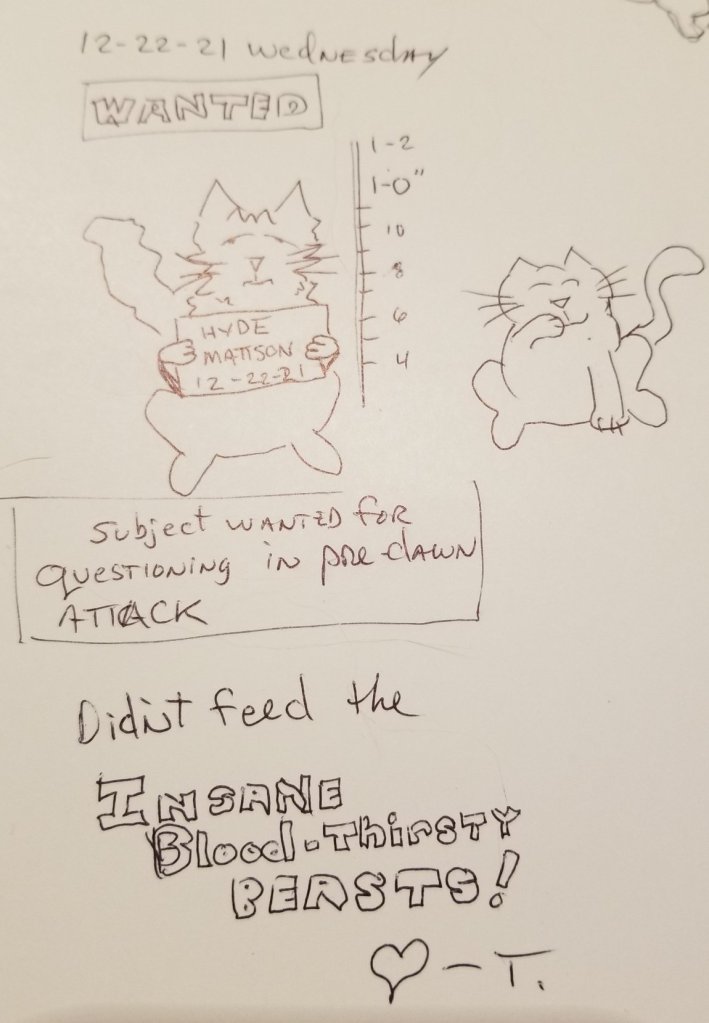 12-22-21 Wednesday
WANTED
1-2
1-0"
10
8
6
4
HYDE
MATTSON
12-22-21
Subject WANTED FOR
QUESTIONING IN pre-dAWN
ATTACK
Didn't feed the
INSANE
Blood-Thirsty
BEASTS!
♡-T.